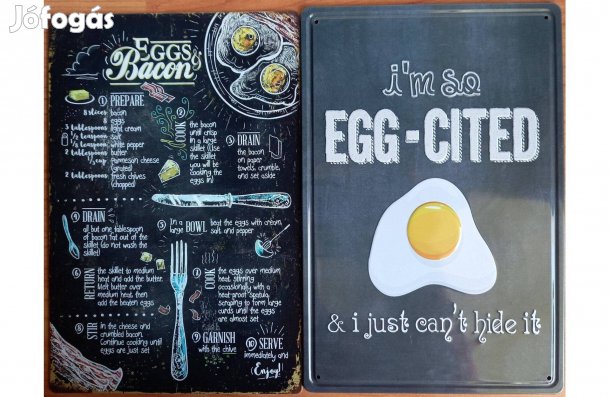 Jófogás
EGGS &
Bacon
① PREPARE
8 slices bacon
8 eggs
3 tablespoons light cream
1/2 teaspoon salt
1/4 teaspoon white pepper
2 tablespoons butter
1/2 cup Parmesan cheese
(grated)
2 tablespoons fresh chives
(chopped)
② COOK
the bacon
until crisp
in a large
skillet (Use
the skillet
you will be
cooking the
eggs in)
③ DRAIN
the bacon
on paper
towels, crumble,
and set aside
④ DRAIN
all but one tablespoon
of bacon fat out of the
skillet (do not wash the
skillet)
⑤ In a
large BOWL beat the eggs with cream,
salt, and pepper
⑥ RETURN
the skillet to medium
heat and add the butter.
Melt butter over
medium heat, then
add the beaten eggs
⑦ COOK
the eggs over medium
heat, stirring
occasionally with a
heat-proof spatula,
scraping to form large
curds until the eggs
are almost set
⑧ STIR
in the cheese and
crumbled bacon.
Continue cooking until
eggs are just set
⑨ GARNISH
with the chive
⑩ SERVE
immediately and
(Enjoy!)
i'm so
EGG-CITED
& i just can't hide it